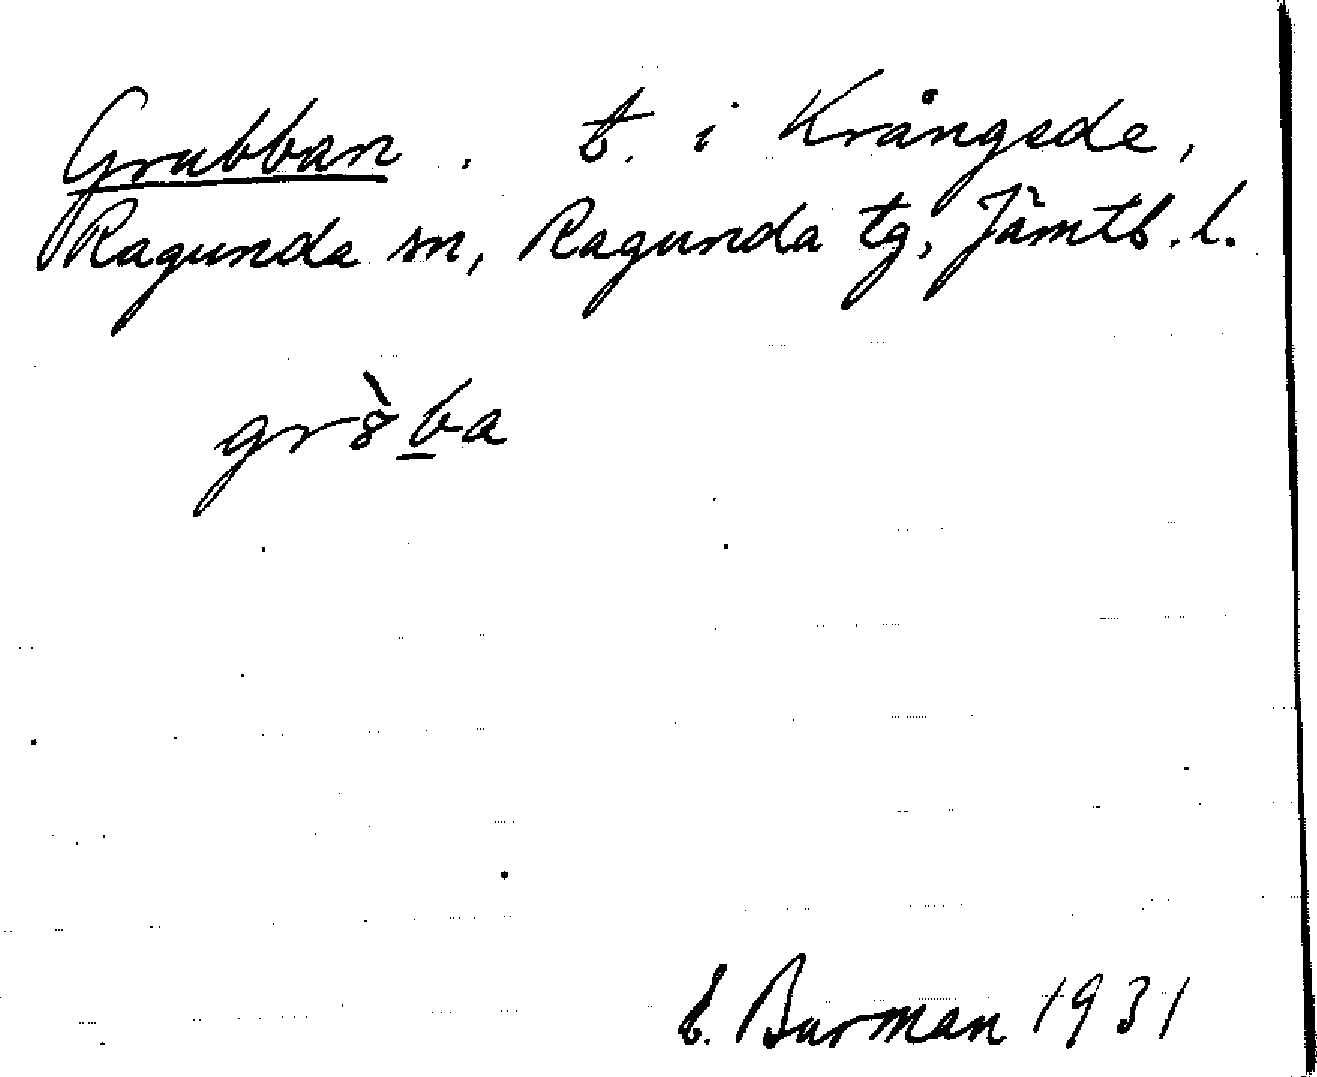 Grubban. t. i Krångede,
Ragunda sn, Ragunda tg, Jämtl. l.
gr8̀ba
E. Burman 1931